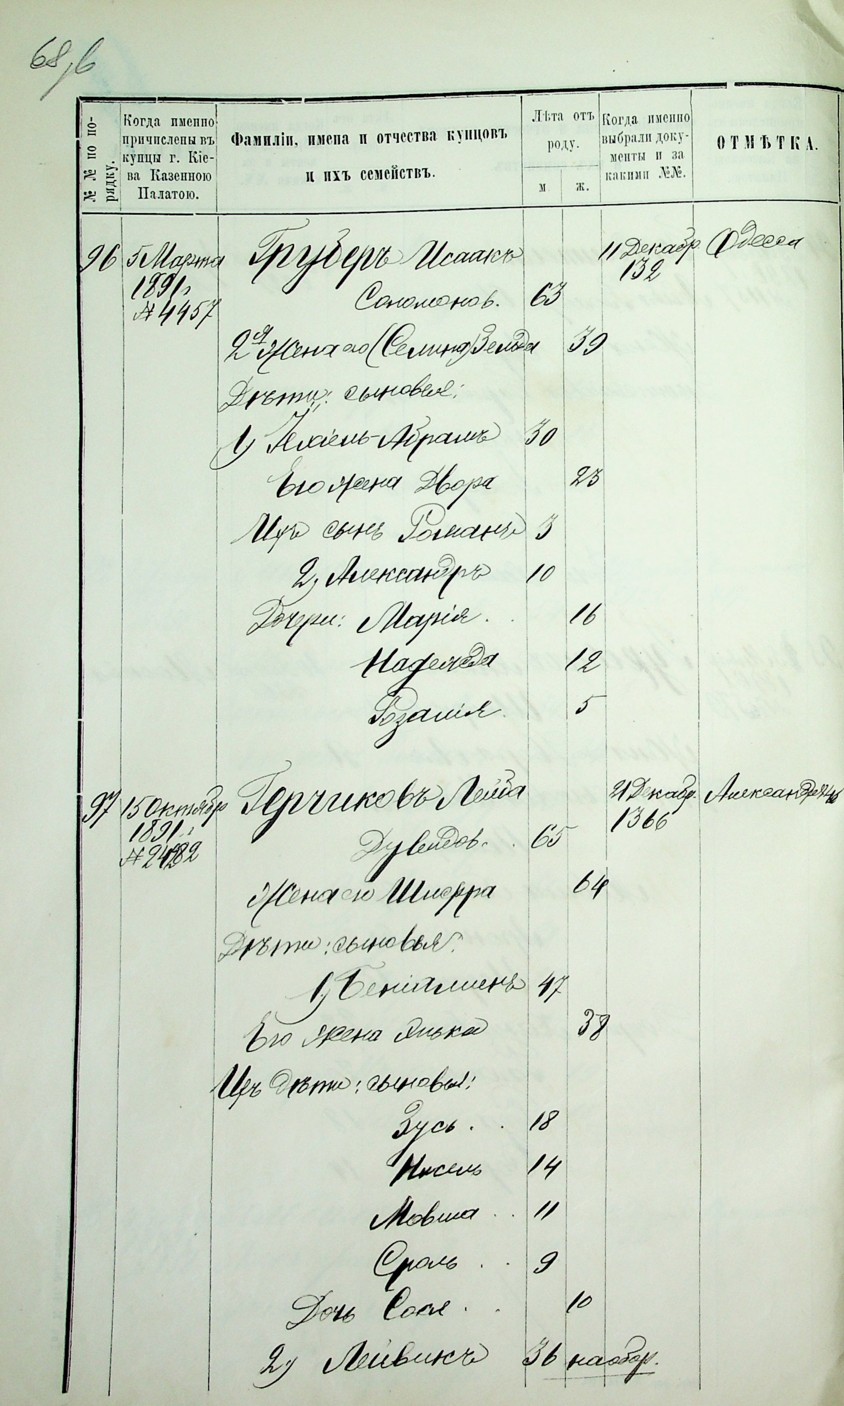 68
№№ по по-
рядку.
Когда именно
причислены въ
купцы г. Кіе-
ва Казенною
Палатою.
Фамиліи, имена и отчества купцовъ
и ихъ семействъ.
Лѣта отъ
роду.
м
ж.
Когда именно
выбрали доку-
менты и за
какими №№.
ОТМѢТКА.
96 5 Марта Груберъ Исаакъ 11 Декабр Одесса
1891 г. 132
№ 4457 Соломонов. 63
2я Жена его (Селина) Зельда 39
Дѣти: сыновья:
1) Іехіель-Абрамъ 30
Его жена Двора 23
Ихъ сынъ Романъ 3
2) Александръ 10
Дочери: Марія 16
Надежда 12
Розалія 5
97 15 Октября Герчиковъ Лейба 21 Декабр.
1891 г. 1366
Дувидов. 65
Жена его Шифра 64
Дѣти: сыновья:
1) Беніаминъ 47
Его жена 38
Ихъ дѣти: сыновья:
Зусь 18
Нисель 14
Мовша 11
Сроль 9
Дочь Соня 10
2) Лейвикъ 36 на обор.